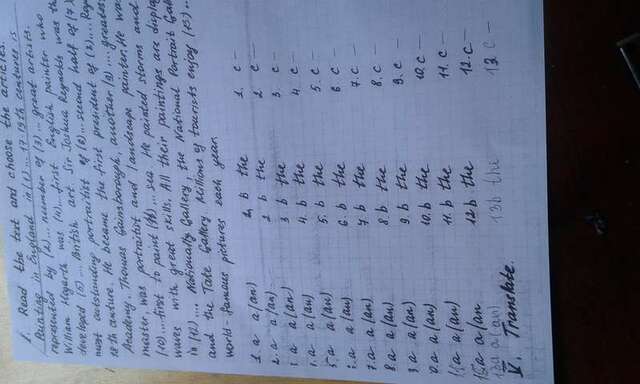 1. Read the text and choose the articles.
Painting in England in (1)... 17-19th centures is
represented by (2)... neember of (3)... great artists.
William Hogarth was (4)... first English painter who
developed (5)... British art. Sir Joshua Reynolds was the
most outstanding portraitist of (6)... second half of (7)
18th centure. He became the first president of (8)... Roy
Academy. Thomas Gainsborough, another (9)... greatest
master, was portraitist and landscape painter. He was
(10)... first to paint (11)... sea. He painted storms and
waves with great skills. All their paintings are display
in (12)... Nationally Gallery, the National Portrait Gal
and the Tate Gallery. Millions of tourists enjoy (13)...
world-famous pictures each year.
1. a a(an) 1. b the 1. c —
2. a a(an) 2 b the 2 c —
3. a a(an) 3 b the 3. c —
4. a a(an) 4. b the 4 c —
5. a a(an) 5. b the 5. c —
6. a a(an) 6. b the 6 c —
7. a a(an) 7 b the 7. c —
8. a a(an) 8. b the 8. c —
9 a a(an) 9. b the 9. c —
10. a a(an) 10. b the 10. c —
11. a a(an) 11. b the 11. c —
12. a a(an 12 b the 12. c —
13a a(an) 13b the 13 c —
V. Translate.